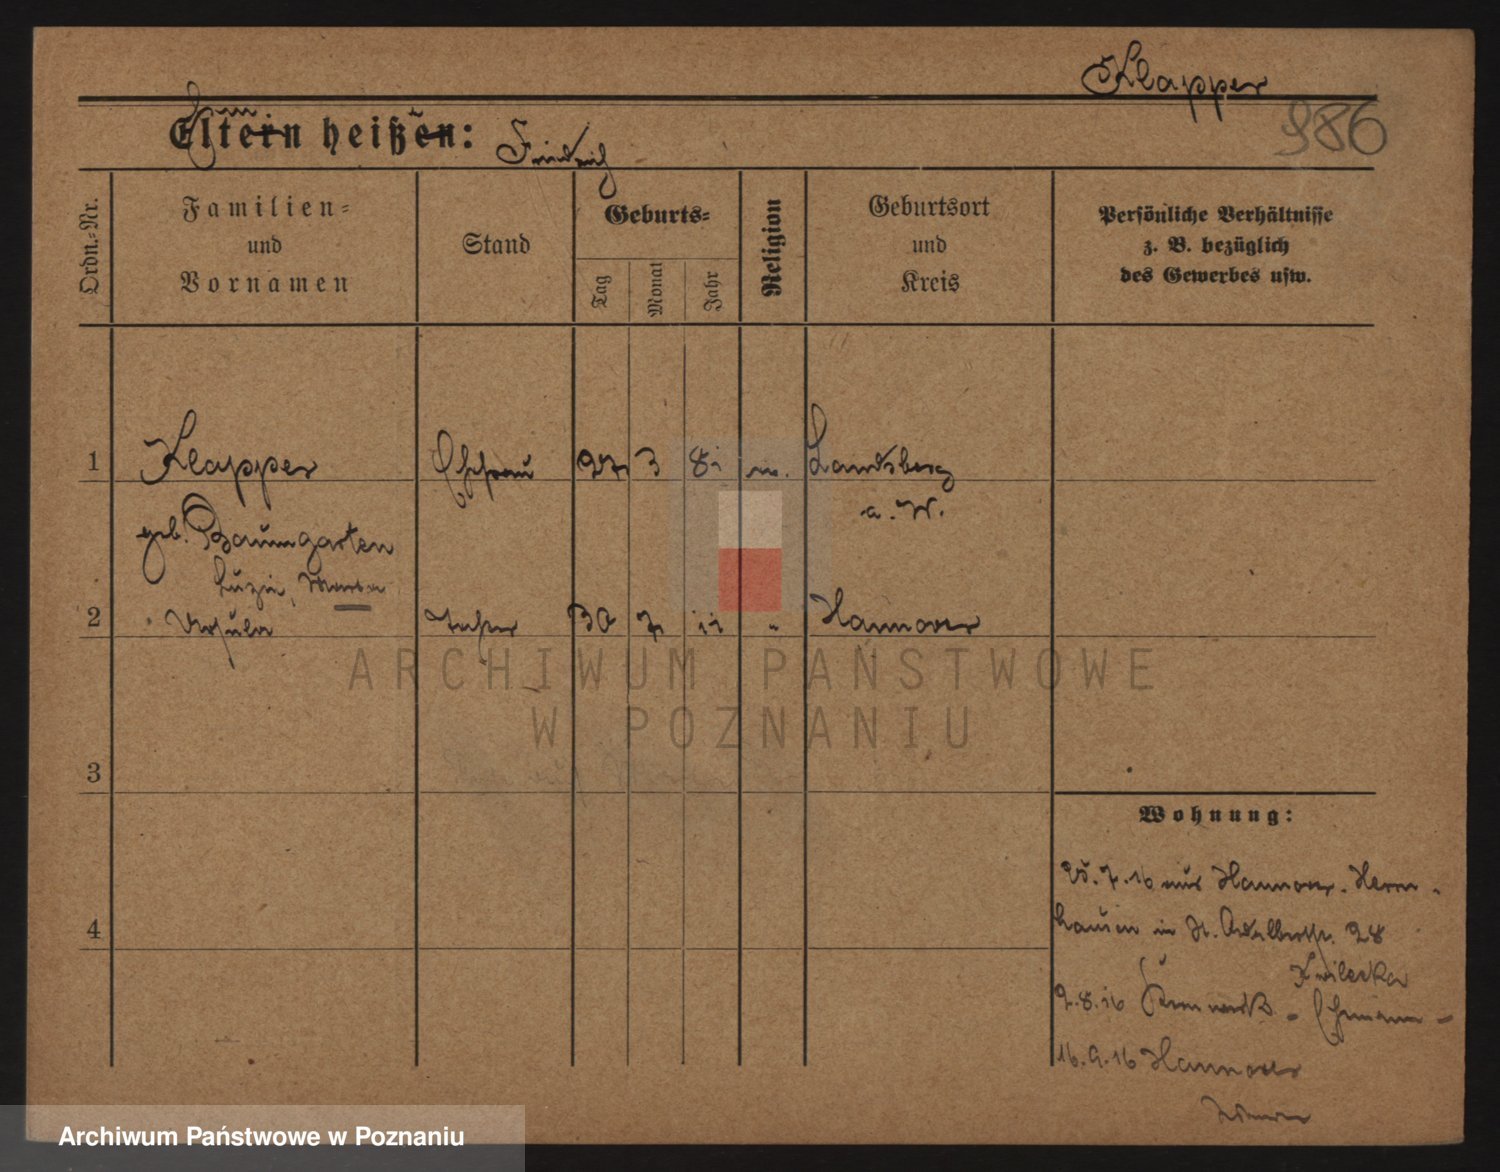 Klapper
986
Eltern heißen: Friedrich
Ordn.-Nr.
Familien-
und
Vornamen
Stand
Geburts-
Tag
Monat
Jahr
Religion
Geburtsort
und
Kreis
Persönliche Verhältnisse
z. B. bezüglich
des Gewerbes usw.
1 Klapper Ehefrau 27 3 81 Landsberg
a. W.
geb. Baumgarten
Luzie, Martha
2 Ursula Tochter 30 7 11 " Hannover
ARCHIWUM PAŃSTWOWE
W POZNANIU
3
Wohnung:
25.7.16 aus Hannover-Herrn-
hausen in St. Adalbertstr. 28
4
Kwilecka
2.8.16 - Ehemann -
16.9.16 Hannover
Archiwum Państwowe w Poznaniu